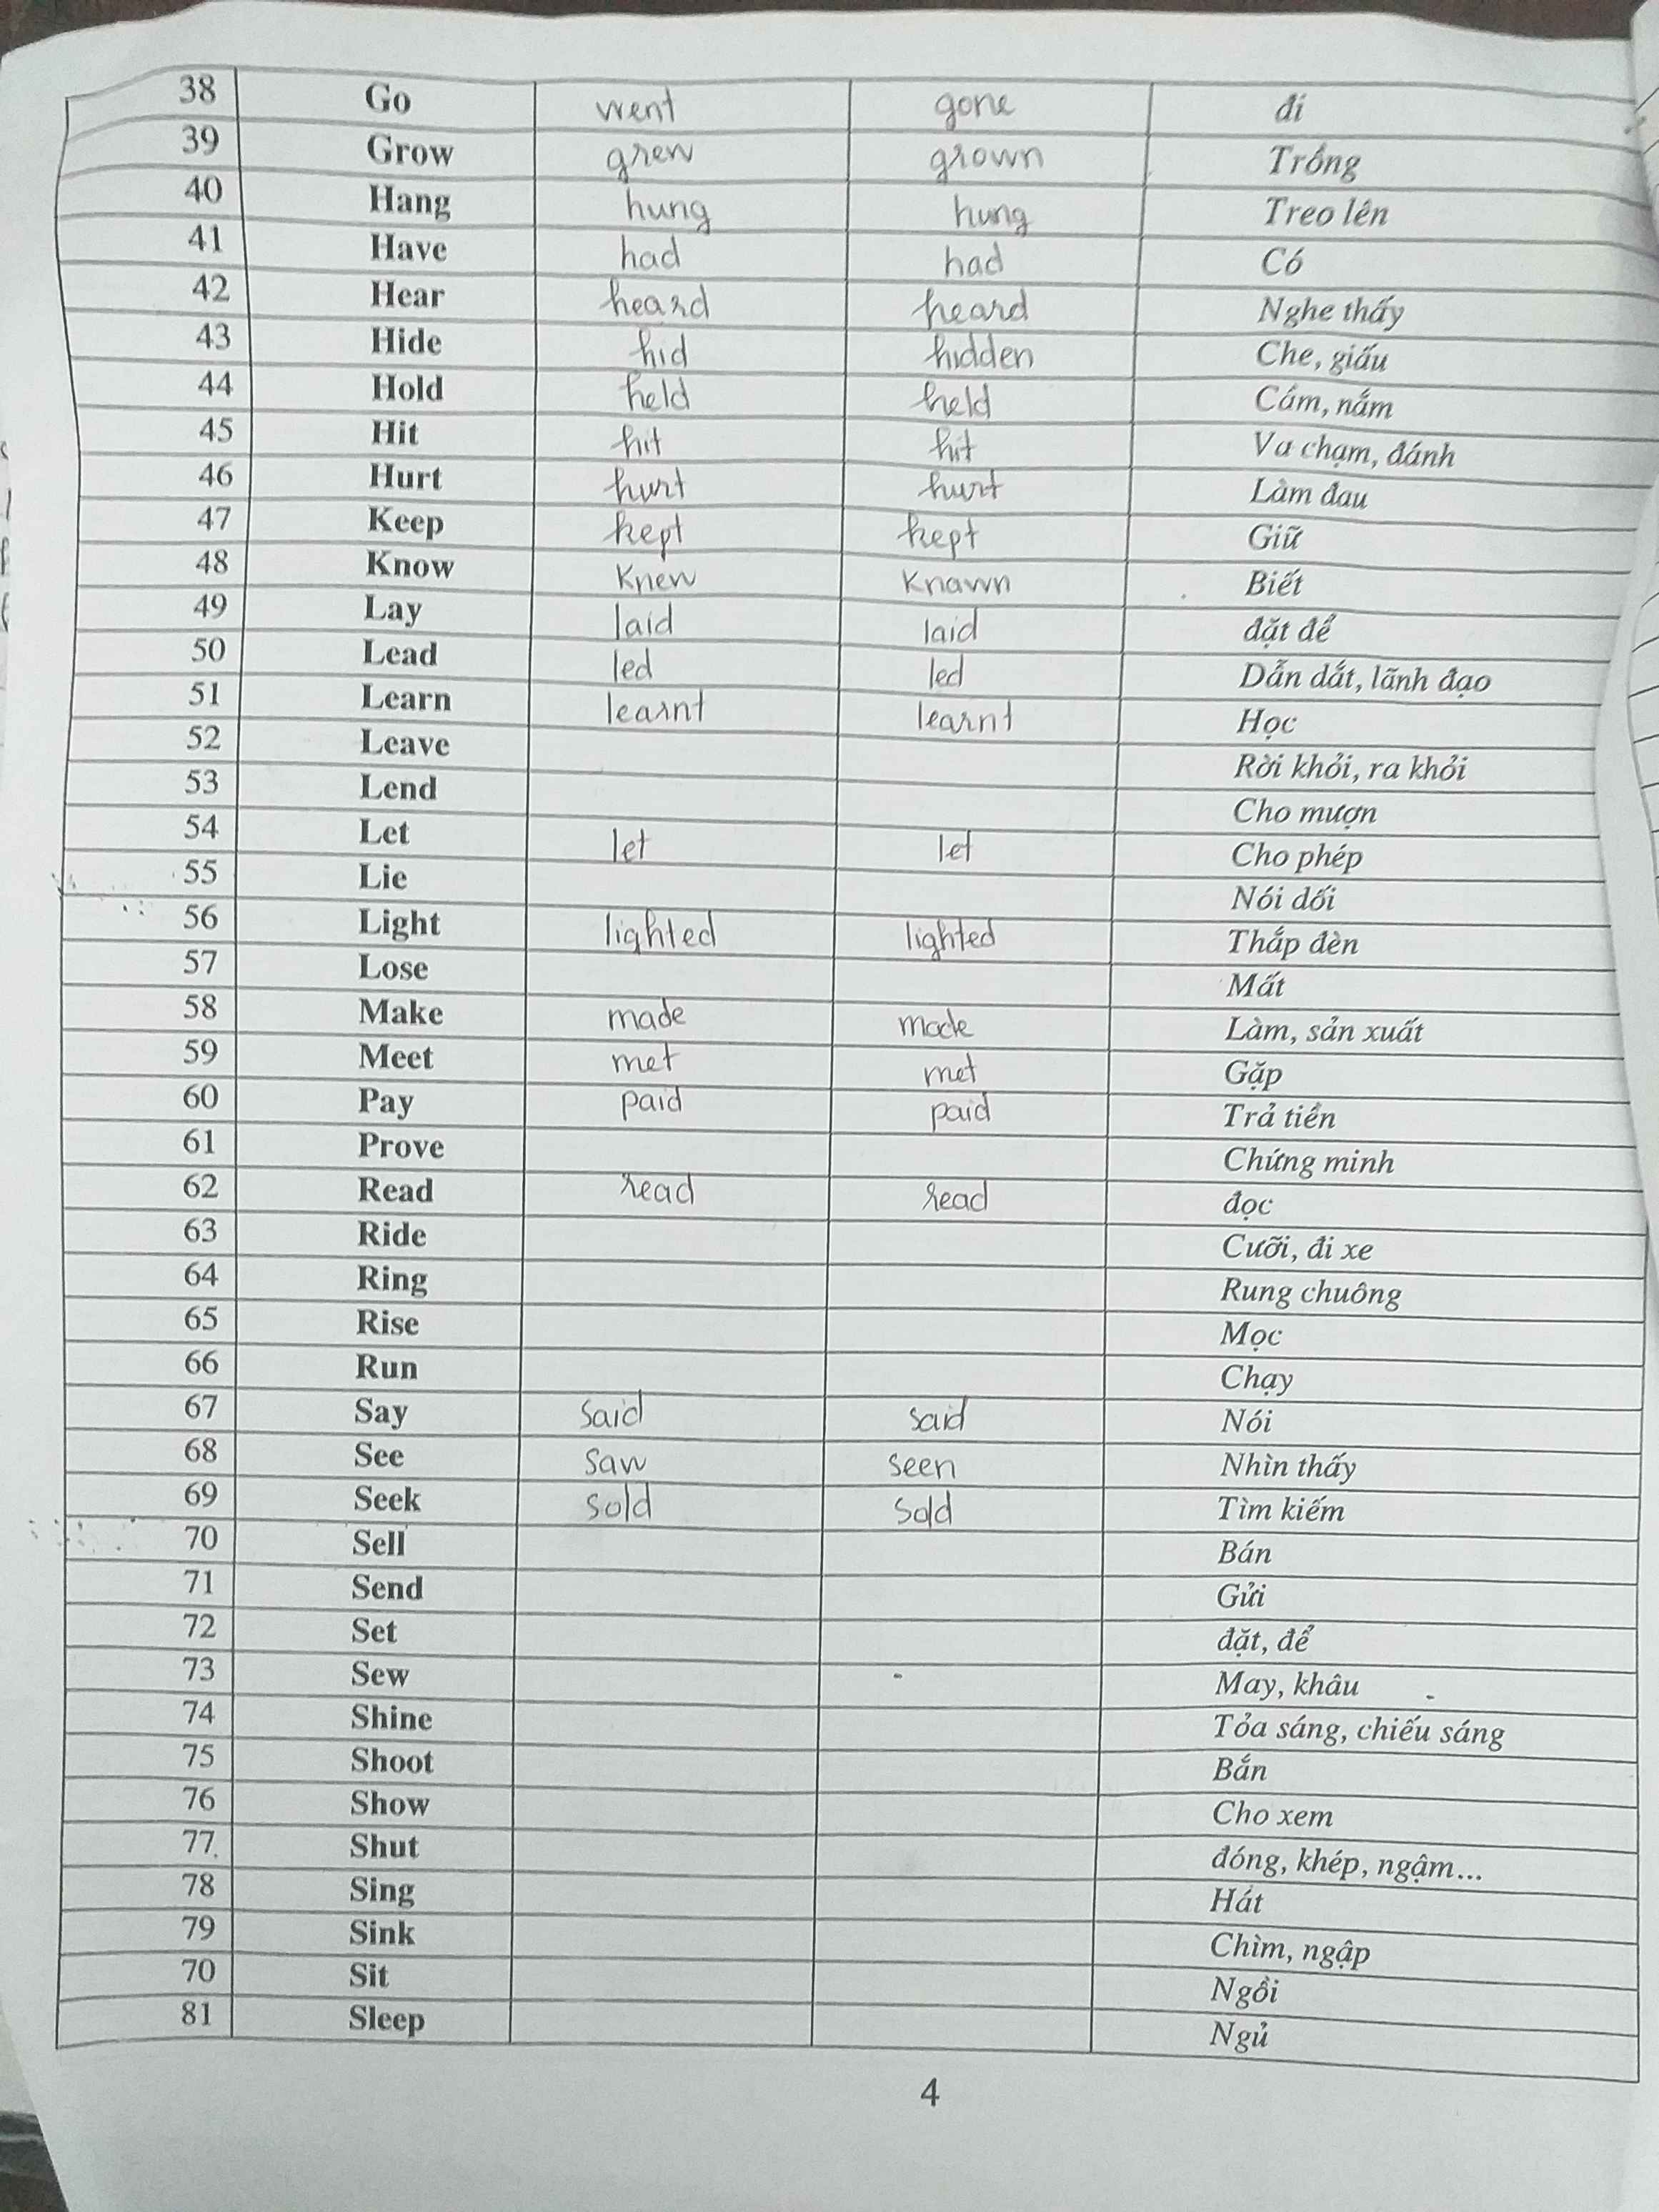 38 Go went gone đi
39 Grow grew grown Trồng
40 Hang hung hung Treo lên
41 Have had had Có
42 Hear heard heard Nghe thấy
43 Hide hid hidden Che, giấu
44 Hold held held Cầm, nắm
45 Hit hit hit Va chạm, đánh
46 Hurt hurt hurt Làm đau
47 Keep kept kept Giữ
48 Know Knew Known Biết
49 Lay laid laid đặt để
50 Lead led led Dẫn dắt, lãnh đạo
51 Learn learnt learnt Học
52 Leave Rời khỏi, ra khỏi
53 Lend Cho mượn
54 Let let let Cho phép
55 Lie Nói dối
56 Light lighted lighted Thắp đèn
57 Lose Mất
58 Make made made Làm, sản xuất
59 Meet met met Gặp
60 Pay paid paid Trả tiền
61 Prove Chứng minh
62 Read read read đọc
63 Ride Cưỡi, đi xe
64 Ring Rung chuông
65 Rise Mọc
66 Run Chạy
67 Say said said Nói
68 See saw seen Nhìn thấy
69 Seek sold sold Tìm kiếm
70 Sell Bán
71 Send Gửi
72 Set đặt, để
73 Sew May, khâu
74 Shine Tỏa sáng, chiếu sáng
75 Shoot Bắn
76 Show Cho xem
77 Shut đóng, khép, ngậm...
78 Sing Hát
79 Sink Chìm, ngập
70 Sit Ngồi
81 Sleep Ngủ
4